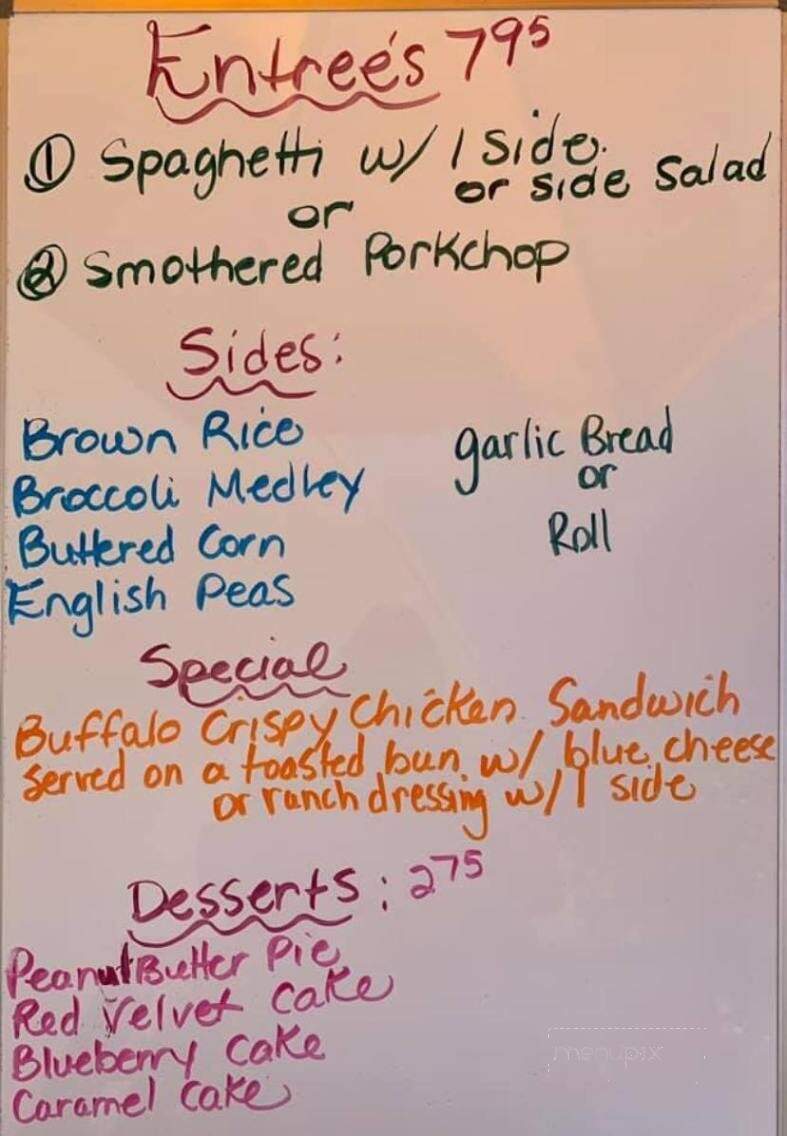 Entree's 795
① Spaghetti w/ 1 Side.
or side Salad
or
② Smothered Porkchop
Sides:
Brown Rice
Broccoli Medley
Buttered Corn
English Peas
garlic Bread
or
Roll
Special
Buffalo Crispy Chicken Sandwich
served on a toasted bun w/ blue cheese
or ranch dressing w/1 side
Desserts: 275
Peanut Butter Pie
Red Velvet Cake
Blueberry Cake
Caramel Cake
menupix